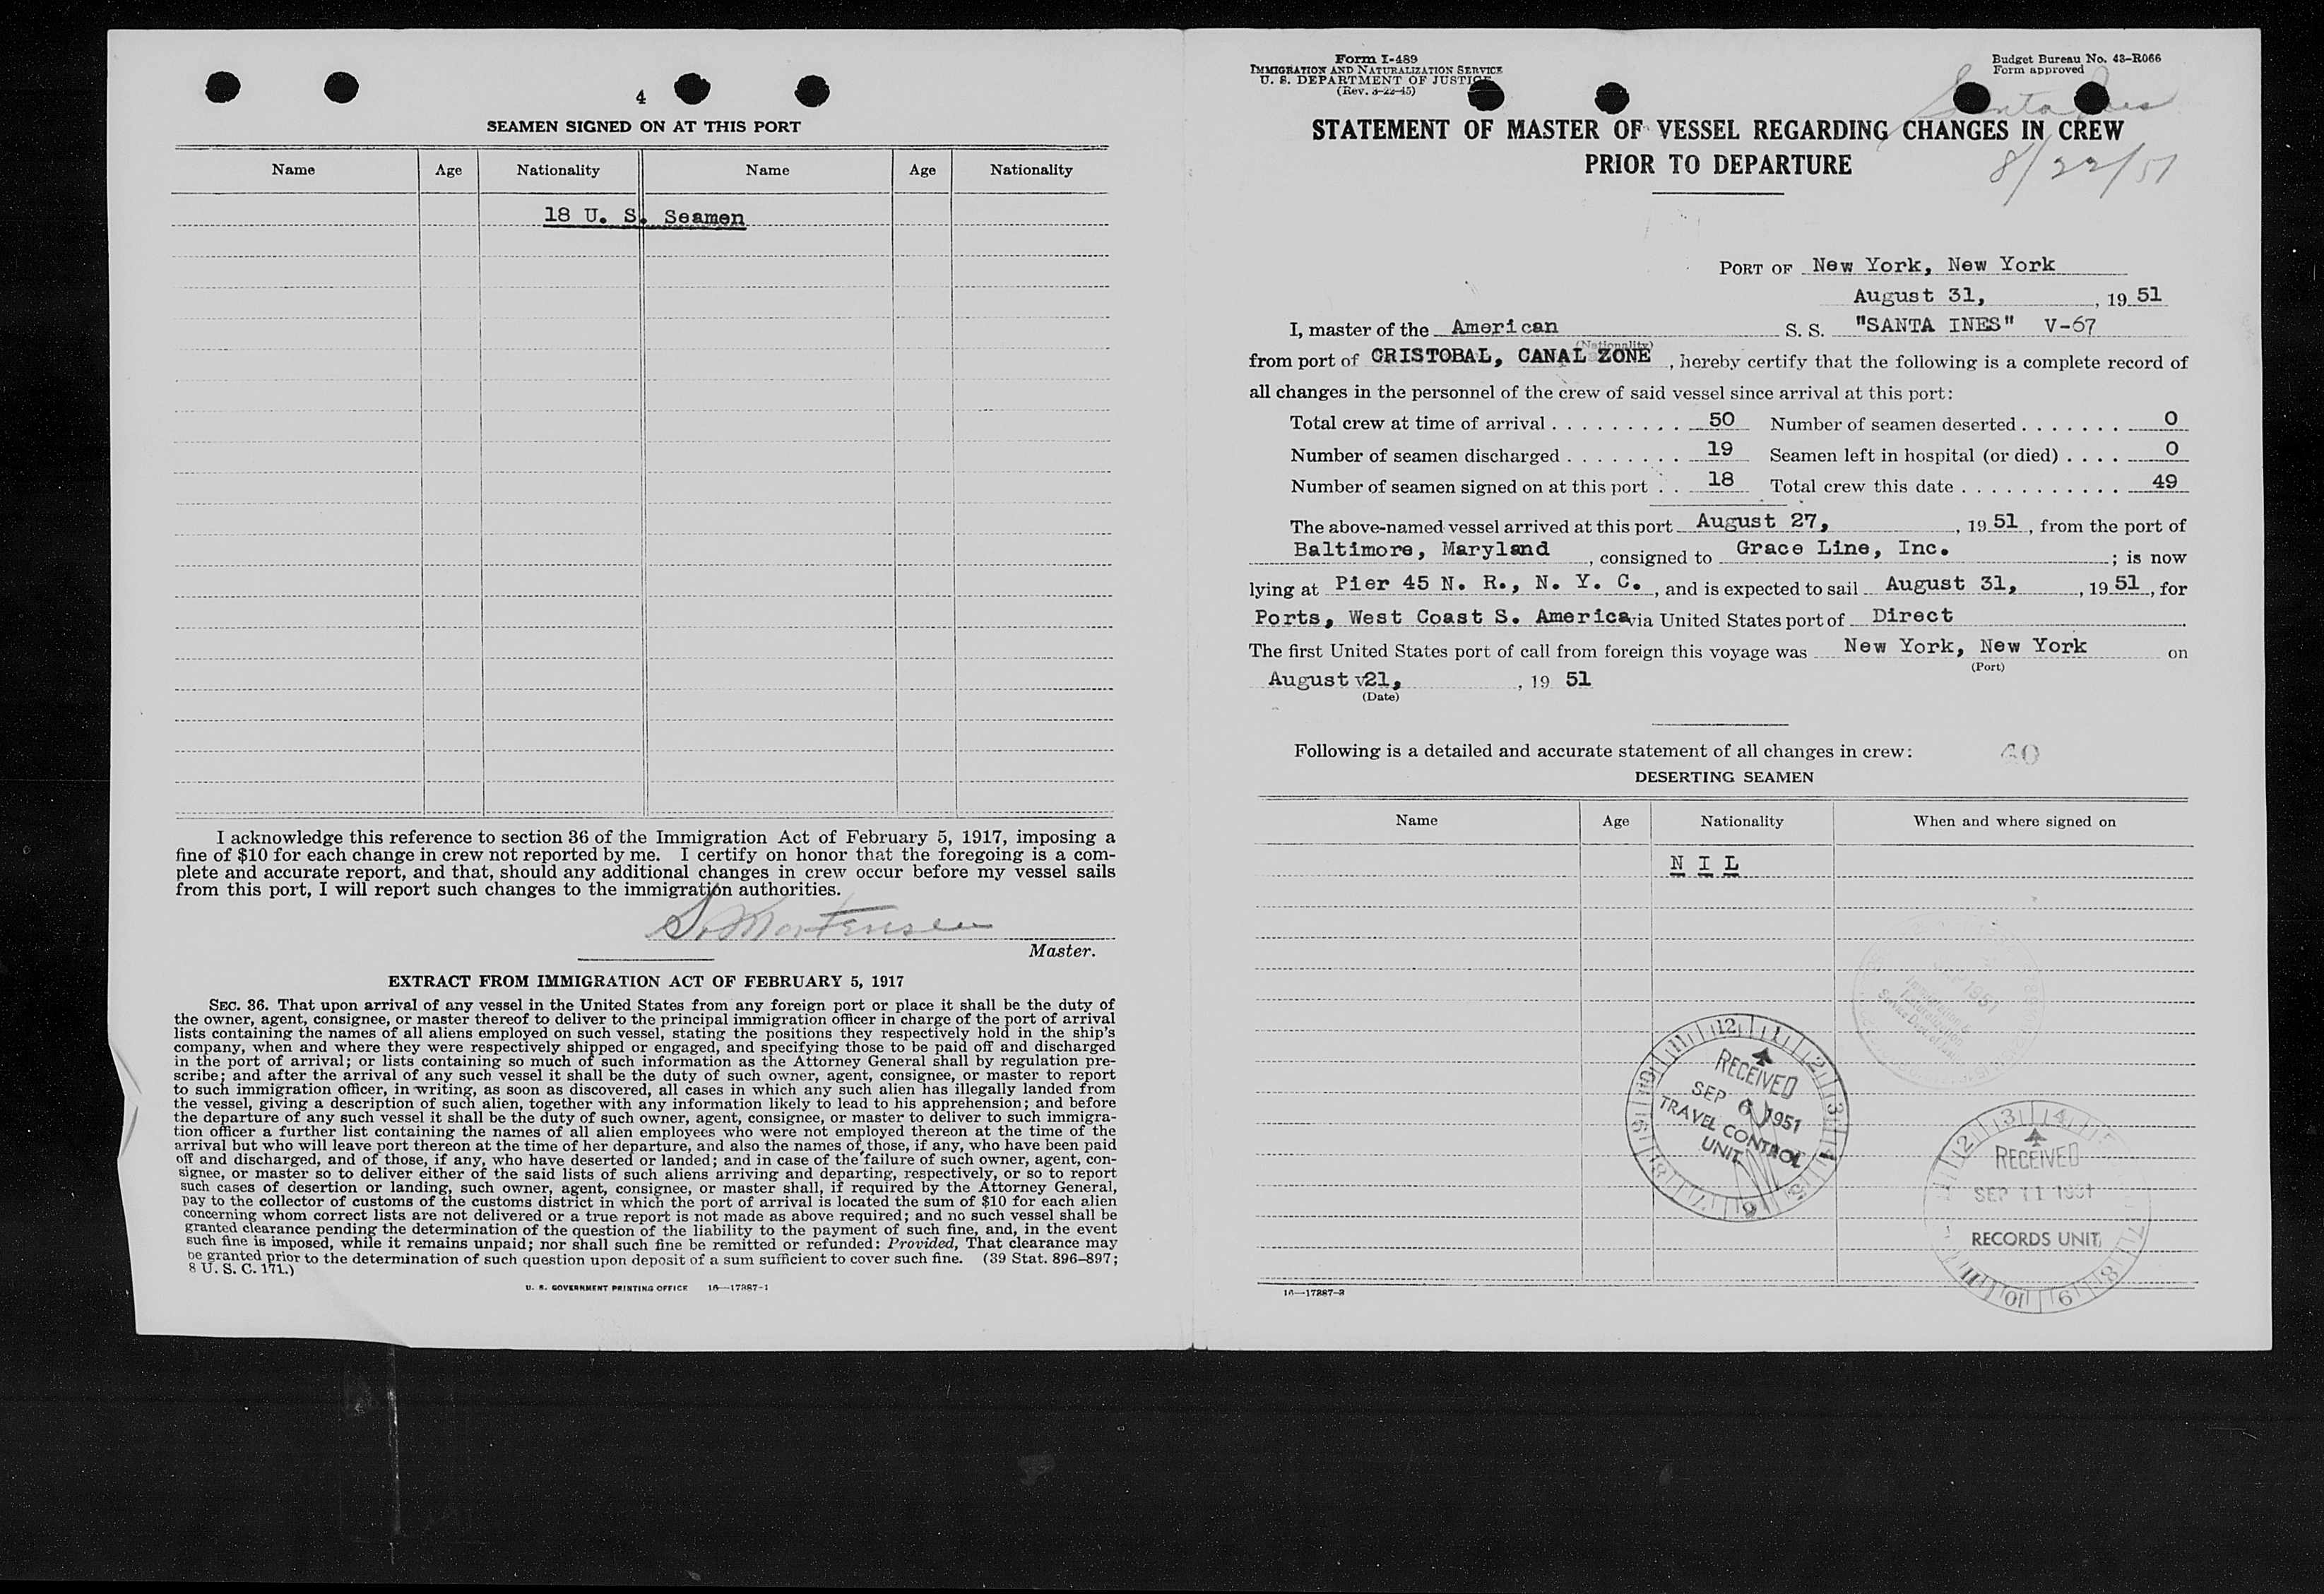 4
SEAMEN SIGNED ON AT THIS PORT
Name Age Nationality Name Age Nationality
18 U. S. Seamen
I acknowledge this reference to section 36 of the Immigration Act of February 5, 1917, imposing a
fine of $10 for each change in crew not reported by me. I certify on honor that the foregoing is a com-
plete and accurate report, and that, should any additional changes in crew occur before my vessel sails
from this port, I will report such changes to the immigration authorities.
S. Mortensen
Master.
EXTRACT FROM IMMIGRATION ACT OF FEBRUARY 5, 1917
SEC. 36. That upon arrival of any vessel in the United States from any foreign port or place it shall be the duty of
the owner, agent, consignee, or master thereof to deliver to the principal immigration officer in charge of the port of arrival
lists containing the names of all aliens employed on such vessel, stating the positions they respectively hold in the ship's
company, when and where they were respectively shipped or engaged, and specifying those to be paid off and discharged
in the port of arrival; or lists containing so much of such information as the Attorney General shall by regulation pre-
scribe; and after the arrival of any such vessel it shall be the duty of such owner, agent, consignee, or master to report
to such immigration officer, in writing, as soon as discovered, all cases in which any such alien has illegally landed from
the vessel, giving a description of such alien, together with any information likely to lead to his apprehension; and before
the departure of any such vessel it shall be the duty of such owner, agent, consignee, or master to deliver to such immigra-
tion officer a further list containing the names of all alien employees who were not employed thereon at the time of the
arrival but who will leave port thereon at the time of her departure, and also the names of those, if any, who have been paid
off and discharged, and of those, if any, who have deserted or landed; and in case of the failure of such owner, agent, con-
signee, or master so to deliver either of the said lists of such aliens arriving and departing, respectively, or so to report
such cases of desertion or landing, such owner, agent, consignee, or master shall, if required by the Attorney General,
pay to the collector of customs of the customs district in which the port of arrival is located the sum of $10 for each alien
concerning whom correct lists are not delivered or a true report is not made as above required; and no such vessel shall be
granted clearance pending the determination of the question of the liability to the payment of such fine, and, in the event
such fine is imposed, while it remains unpaid; nor shall such fine be remitted or refunded: Provided, That clearance may
be granted prior to the determination of such question upon deposit of a sum sufficient to cover such fine. (39 Stat. 896-897;
8 U. S. C. 171.)
U. S. GOVERNMENT PRINTING OFFICE 16—17887-1
Form I-489
IMMIGRATION AND NATURALIZATION SERVICE
U. S. DEPARTMENT OF JUSTICE
(Rev. 3-22-45)
Budget Bureau No. 43-R066
Form approved
Santa Ines
8/22/51
STATEMENT OF MASTER OF VESSEL REGARDING CHANGES IN CREW
PRIOR TO DEPARTURE
PORT OF New York, New York
August 31, , 19 51
I, master of the American S. S. "SANTA INES" V-67
(Nationality)
from port of CRISTOBAL, CANAL ZONE , hereby certify that the following is a complete record of
all changes in the personnel of the crew of said vessel since arrival at this port:
Total crew at time of arrival . . . . . . . . . . 50 Number of seamen deserted . . . . . . . 0
Number of seamen discharged . . . . . . . . 19 Seamen left in hospital (or died) . . . . 0
Number of seamen signed on at this port . . 18 Total crew this date . . . . . . . . . . . 49
The above-named vessel arrived at this port August 27, , 19 51 , from the port of
Baltimore, Maryland , consigned to Grace Line, Inc. ; is now
lying at Pier 45 N. R., N. Y. C. , and is expected to sail August 31, , 19 51 , for
Ports, West Coast S. America via United States port of Direct
The first United States port of call from foreign this voyage was New York, New York on
(Port)
August 21, , 19 51
(Date)
Following is a detailed and accurate statement of all changes in crew:
DESERTING SEAMEN
Name Age Nationality When and where signed on
N I L
RECEIVED
SEP 6 1951
TRAVEL CONTROL
UNIT
RECEIVED
SEP 11 1951
RECORDS UNIT
16—17887-3